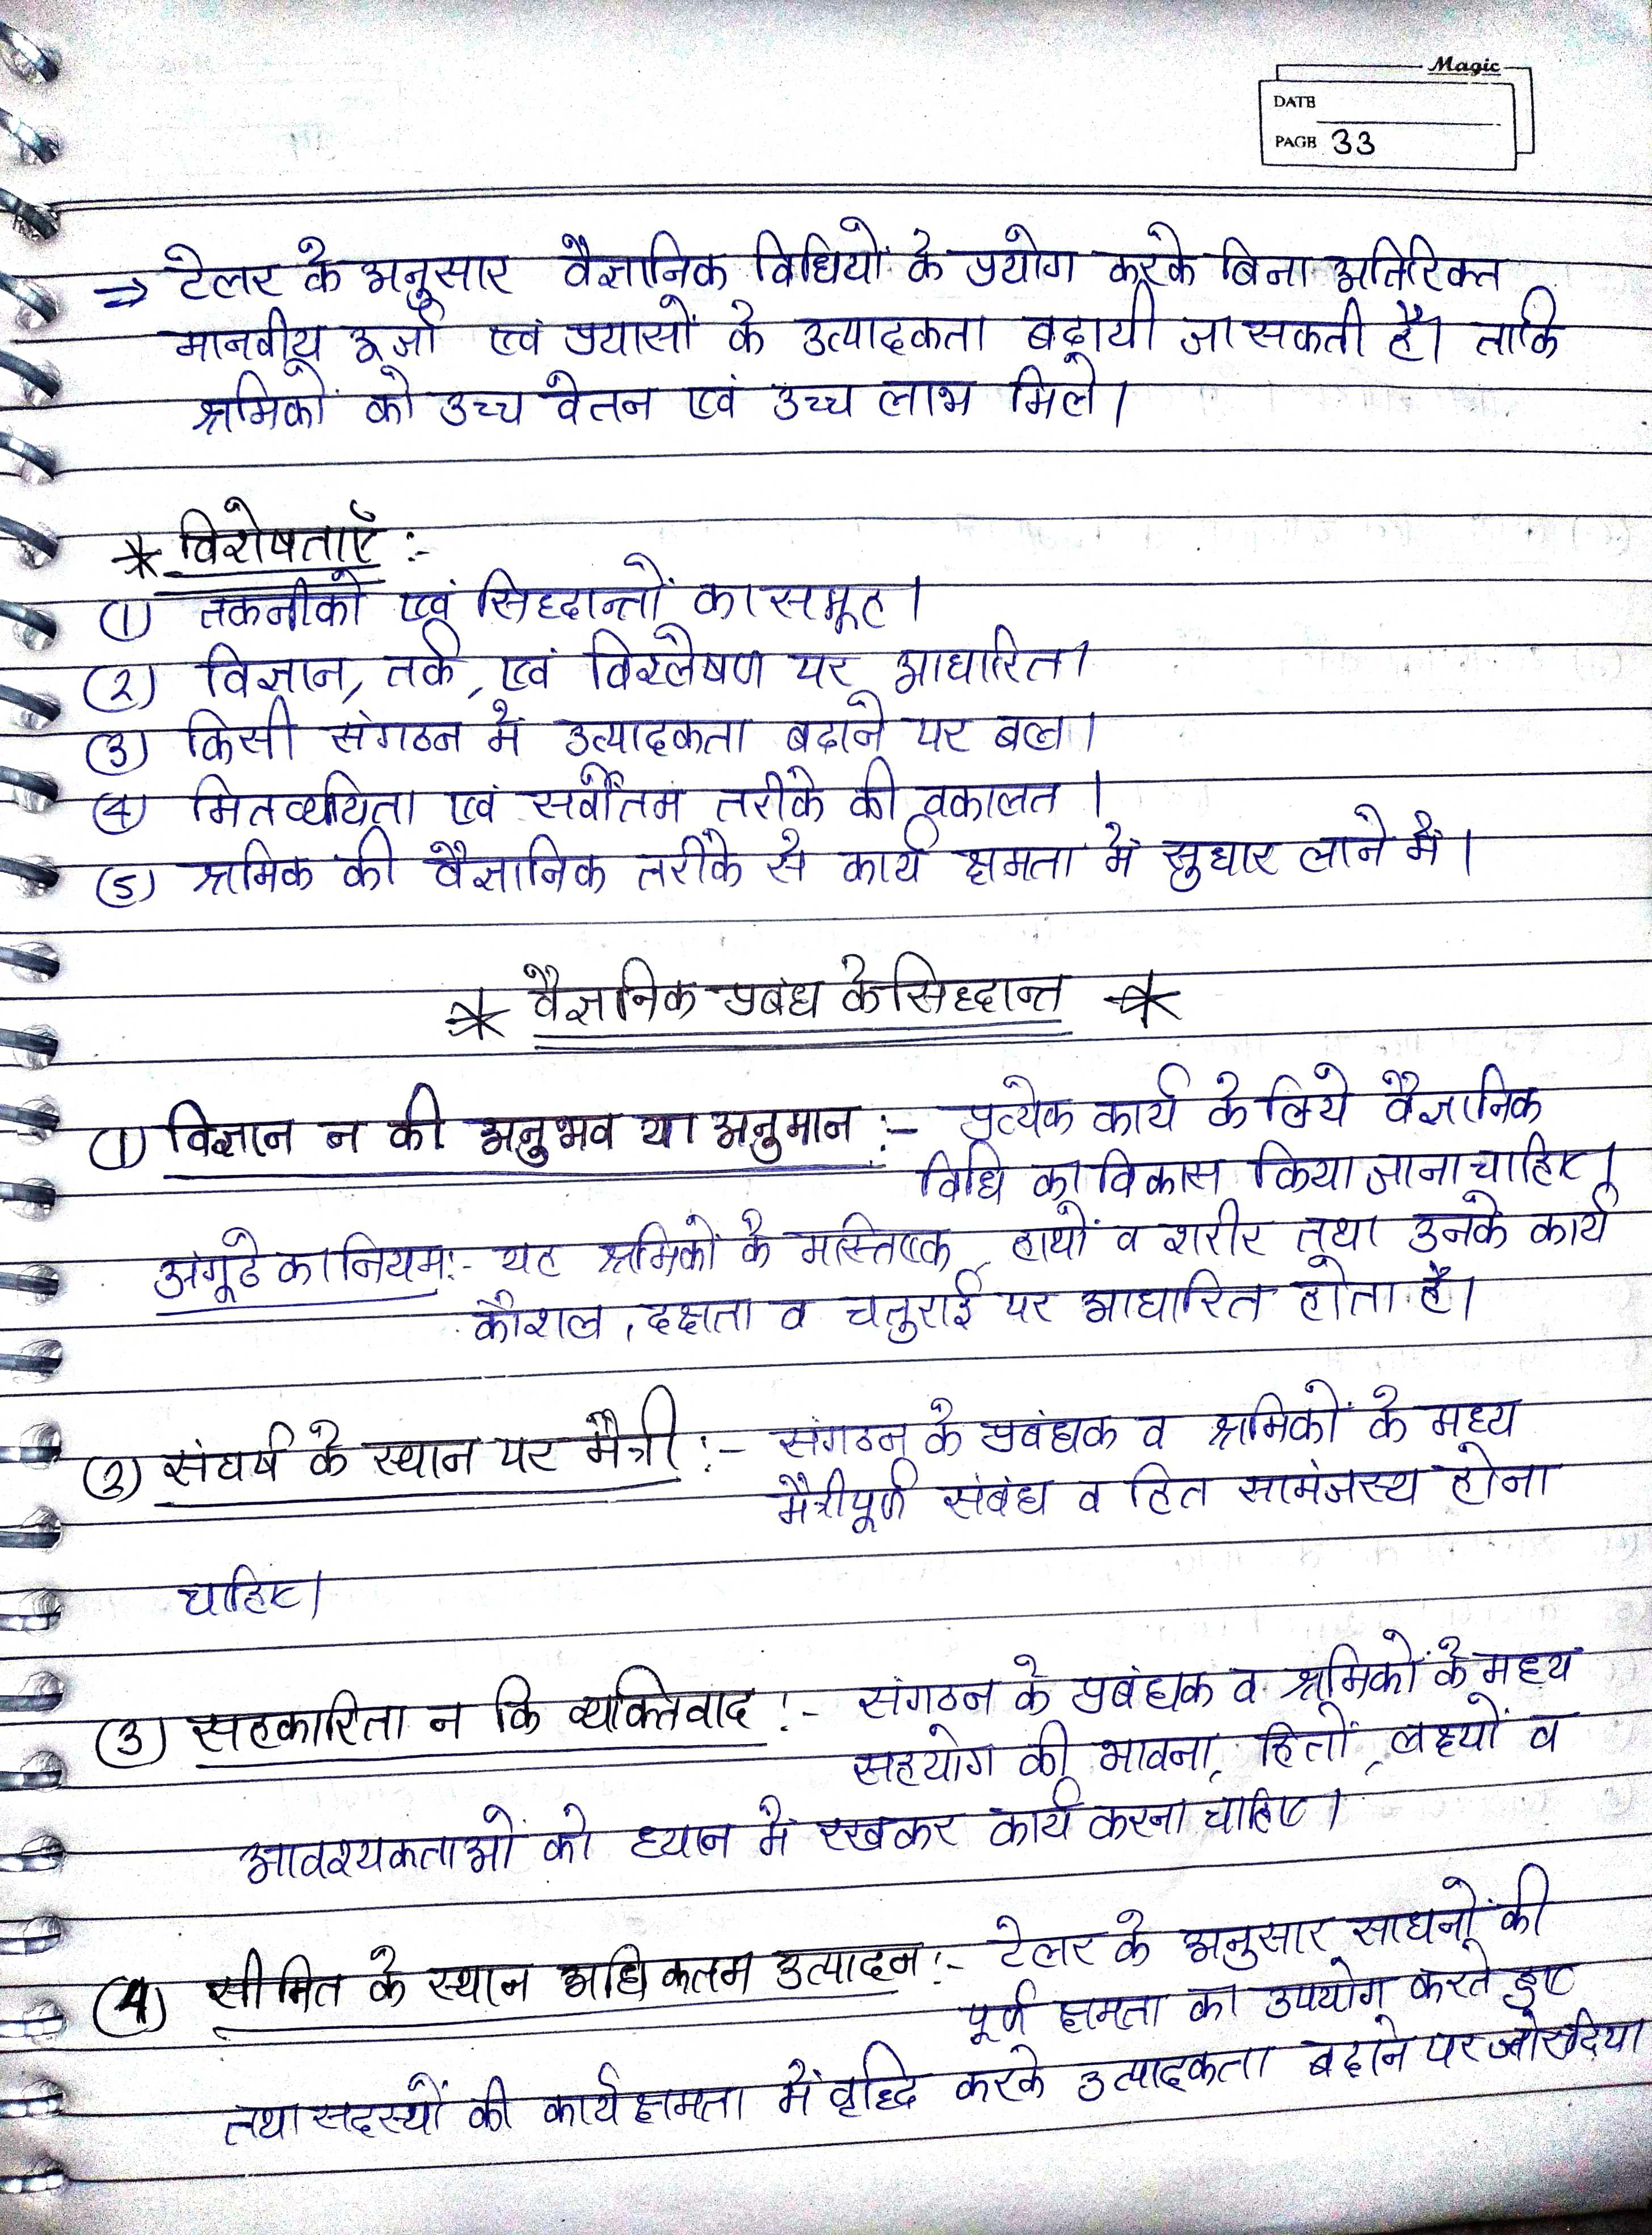 Magic
DATE
PAGE 33
⇒ टेलर के अनुसार वैज्ञानिक विधियों के प्रयोग करके बिना अतिरिक्त
मानवीय ऊर्जा एवं प्रयासों के उत्पादकता बढ़ायी जा सकती है। ताकि
श्रमिकों को उच्च वेतन एवं उच्च लाभ मिले।
* विशेषताएँ :-
(1) तकनीकों एवं सिद्धान्तों का समूह।
(2) विज्ञान, तर्क, एवं विश्लेषण पर आधारित।
(3) किसी संगठन में उत्पादकता बढाने पर बल।
(4) मितव्ययिता एवं सर्वोतम तरीके की वकालत।
(5) श्रमिक की वैज्ञानिक तरीके से कार्य क्षमता में सुधार लाने में।
* वैज्ञानिक प्रबंध के सिद्धान्त *
(1) विज्ञान न की अनुभव या अनुमान :- प्रत्येक कार्य के लिये वैज्ञानिक
विधि का विकास किया जाना चाहिए।
अंगूठे का नियम :- यह श्रमिकों के मस्तिष्क, हाथों व शरीर तथा उनके कार्य
कौशल, दक्षता व चतुराई पर आधारित होता है।
(2) संघर्ष के स्थान पर मैत्री :- संगठन के प्रबंधक व श्रमिकों के मध्य
मैत्रीपूर्ण संबंध व हित सामंजस्य होना
चाहिए।
(3) सहकारिता न कि व्यक्तिवाद :- संगठन के प्रबंधक व श्रमिकों के मध्य
सहयोग की भावना, हितों, लक्ष्यों व
आवश्यकताओं को ध्यान में रखकर कार्य करना चाहिए।
(4) सीमित के स्थान अधिकतम उत्पादन :- टेलर के अनुसार साधनों की
पूर्ण क्षमता का उपयोग करते हुए
तथा सदस्यों की कार्यक्षमता में वृद्धि करके उत्पादकता बढाने पर जोर दिया